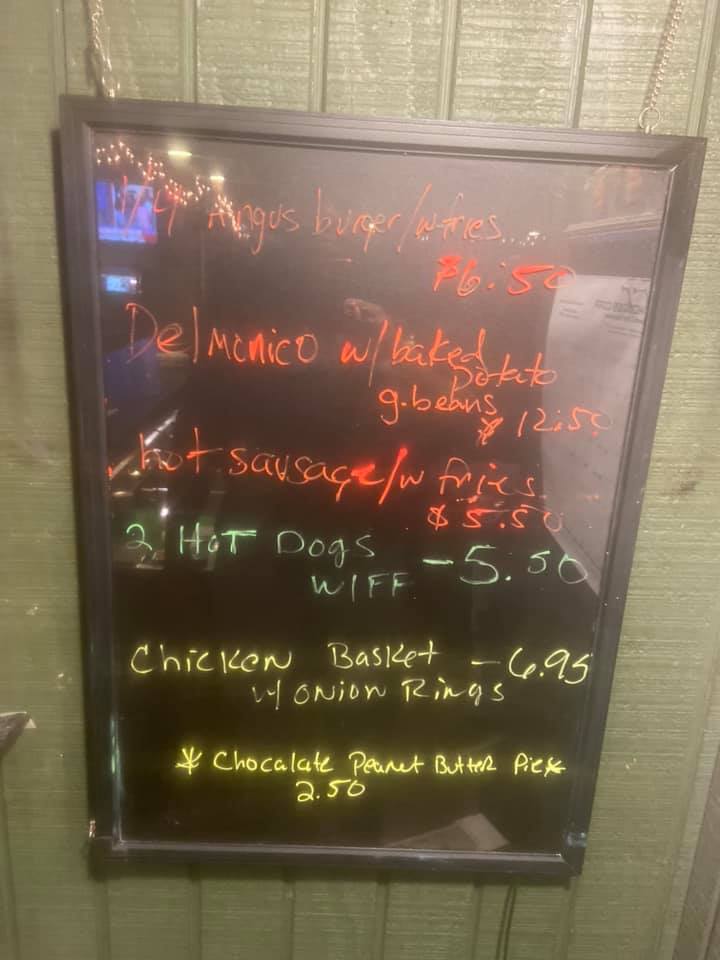 1/4 Angus burger/w fries
$6.50
Delmonico w/baked
potato
g.beans
$12.50
hot sausage/w fries
$5.50
2 HOT DOGS -5.50
W/FF
Chicken Basket -6.95
w/ Onion Rings
* Chocalate Peanut Butter Pie *
2.50